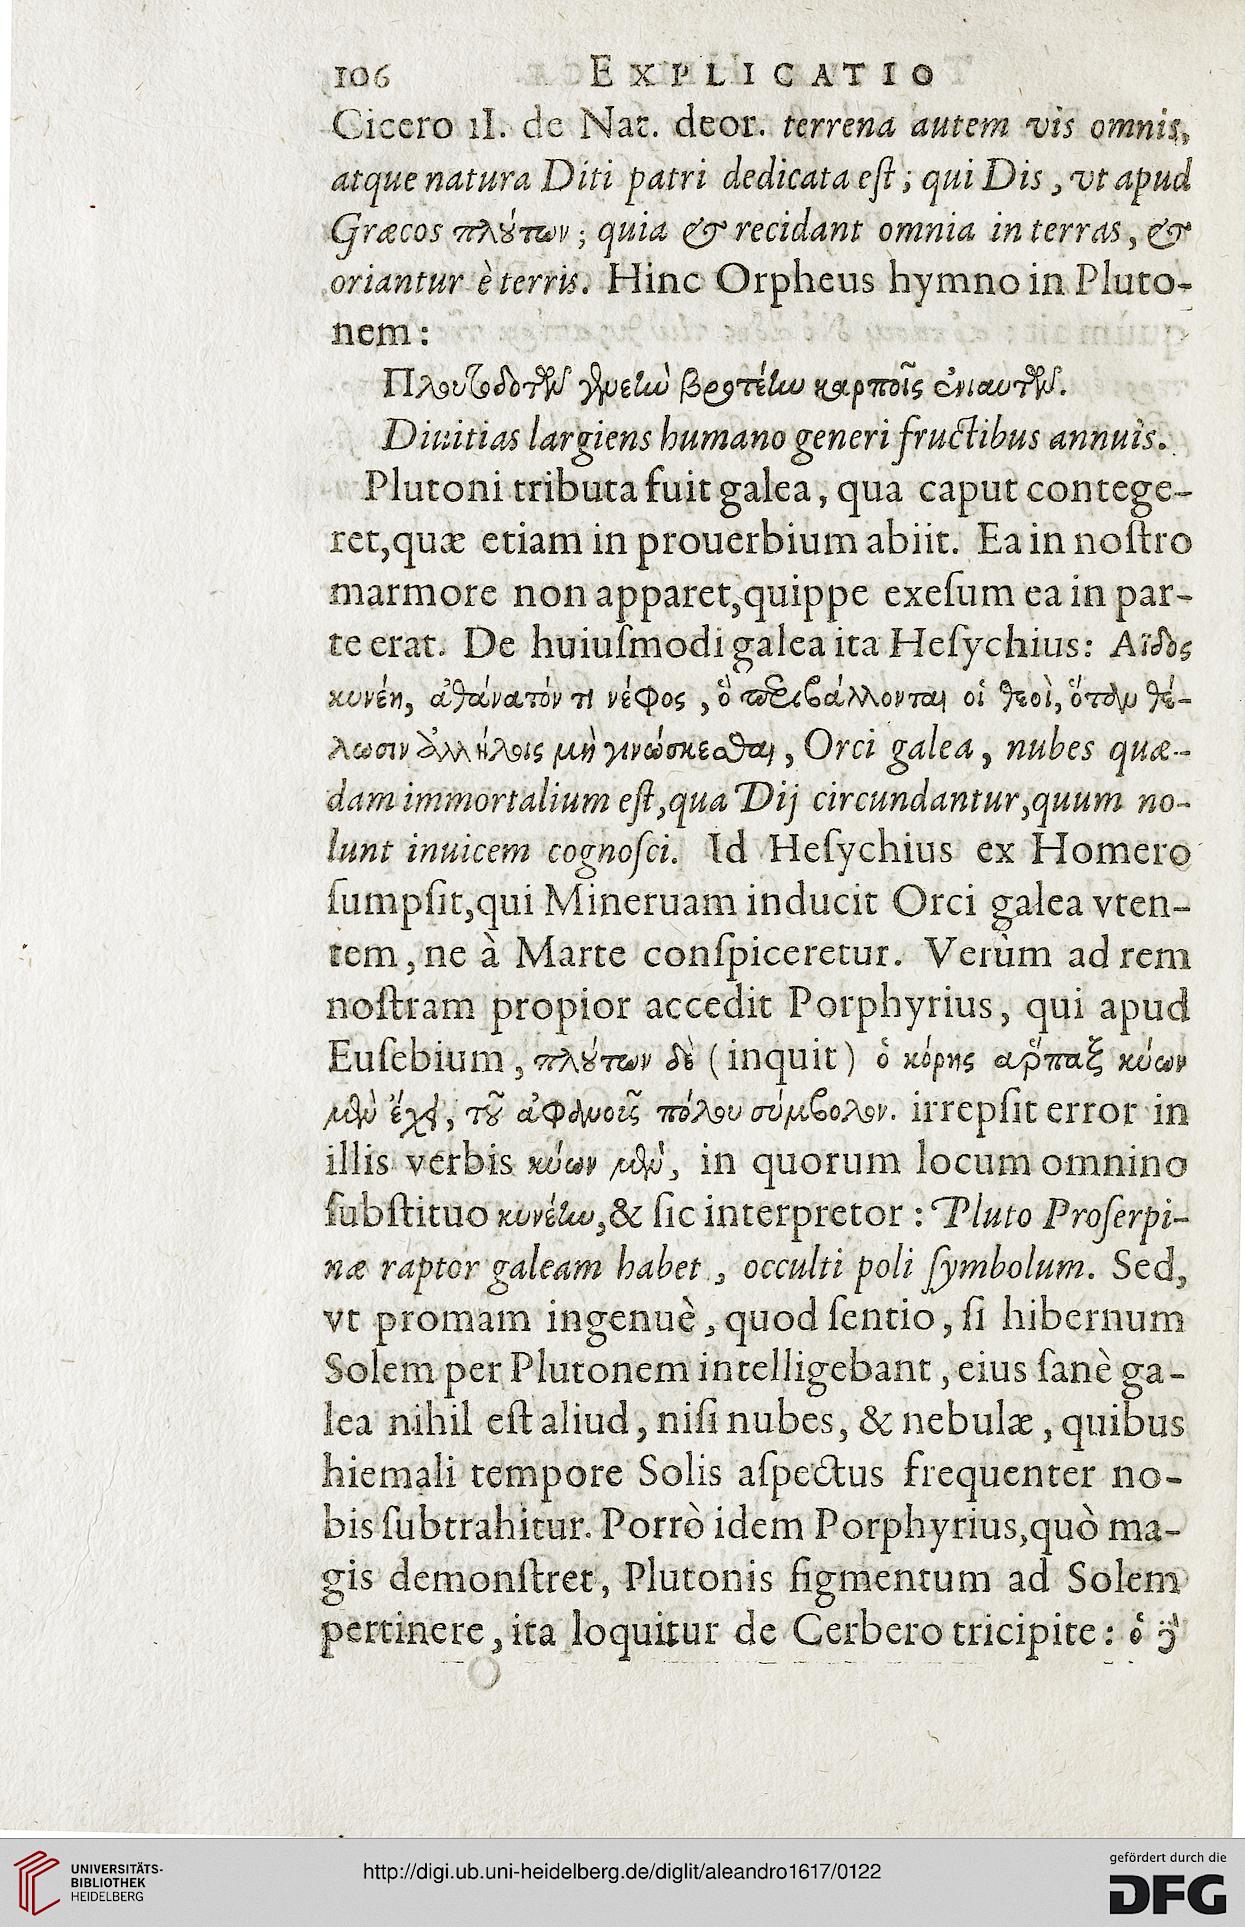 106 EXPLICATIO
Cicero II. de Nat. deor. terrena autem vis omnis,
atque natura Diti patri dedicata eſt; qui Dis, vt apud
Græcos πλούτων; quia & recidant omnia in terras, &
oriantur è terris. Hinc Orpheus hymno in Pluto-
nem:
Πλουτοδοτῶν γενεὴν βροτέην καρποῖς ἐνιαυτῶν.
Diuitias largiens humano generi fructibus annuis.
Plutoni tributa fuit galea, qua caput contege-
ret, quæ etiam in prouerbium abiit. Ea in noſtro
marmore non apparet, quippe exeſum ea in par-
te erat. De huiuſmodi galea ita Heſychius: Αϊδος
κυνέη, ἀθάνατόν τι νέφος, ὃ περιβάλλονται οἱ θεοὶ, ὅταν θέ-
λωσιν ἀλλήλοις μὴ γινώσκεσθαι, Orci galea, nubes quæ-
dam immortalium eſt, qua Dij circundantur, quum no-
lunt inuicem cognoſci. Id Heſychius ex Homero
ſumpſit, qui Mineruam inducit Orci galea vten-
tem, ne à Marte conſpiceretur. Verùm ad rem
noſtram propior accedit Porphyrius, qui apud
Euſebium, πλούτων δὲ (inquit) ὁ κόρης ἅρπαξ κύων
μὲν ἔχει, τοῦ ἀφανοῖς πόλου σύμβολον. irrepſit error in
illis verbis κύων μὲν, in quorum locum omnino
ſubſtituo κυνέην, & ſic interpretor: Pluto Proſerpi-
næ raptor galeam habet, occulti poli ſymbolum. Sed,
vt promam ingenuè, quod ſentio, ſi hibernum
Solem per Plutonem intelligebant, eius ſanè ga-
lea nihil eſt aliud, niſi nubes, & nebulæ, quibus
hiemali tempore Solis aſpectus frequenter no-
bis ſubtrahitur. Porrò idem Porphyrius, quò ma-
gis demonſtret, Plutonis figmentum ad Solem
pertinere, ita loquitur de Cerbero tricipite: ὁ δὲ
UNIVERSITÄTS-
BIBLIOTHEK
HEIDELBERG
http://digi.ub.uni-heidelberg.de/diglit/aleandro1617/0122
gefördert durch die
DFG